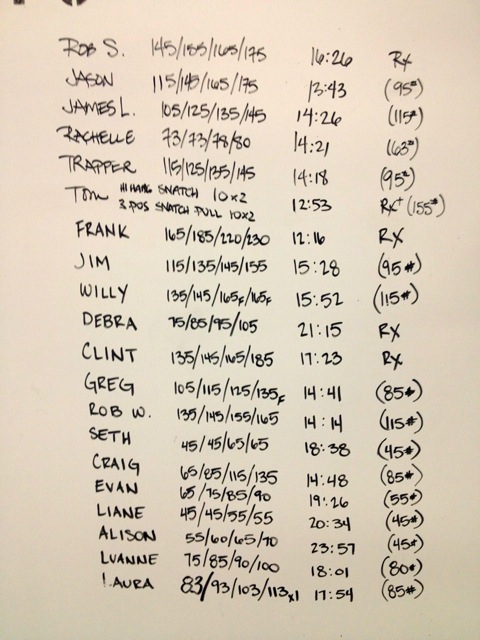 ROB S. 145/155/165/175 16:26 Rx
JASON 115/145/165/175 13:43 (95#)
JAMES L. 105/125/135/145 14:26 (115#)
RACHELLE 73/73/78/80 14:21 (63#)
TRAPPER 115/125/135/145 14:18 (95#)
TOM HI HANG SNATCH 10x2 12:53 RX+ (155#)
3 POS SNATCH PULL 10x2
FRANK 165/185/220/230 12:16 RX
JIM 115/135/145/155 15:28 (95#)
WILLY 135/145/165F/165F 15:52 (115#)
DEBRA 75/85/95/105 21:15 RX
CLINT 135/145/165/185 17:23 RX
GREG 105/115/125/135F 14:41 (85#)
ROB W. 135/145/155/165 14:14 (115#)
SETH 45/45/65/65 18:38 (45#)
CRAIG 65/85/115/135 14:48 (85#)
EVAN 65/75/85/90 19:26 (55#)
LIANE 45/45/55/55 20:34 (45#)
ALISON 55/60/65/70 23:57 (45#)
LVANNE 75/85/90/100 18:01 (80#)
LAURA 83/93/103/113x1 17:54 (85#)